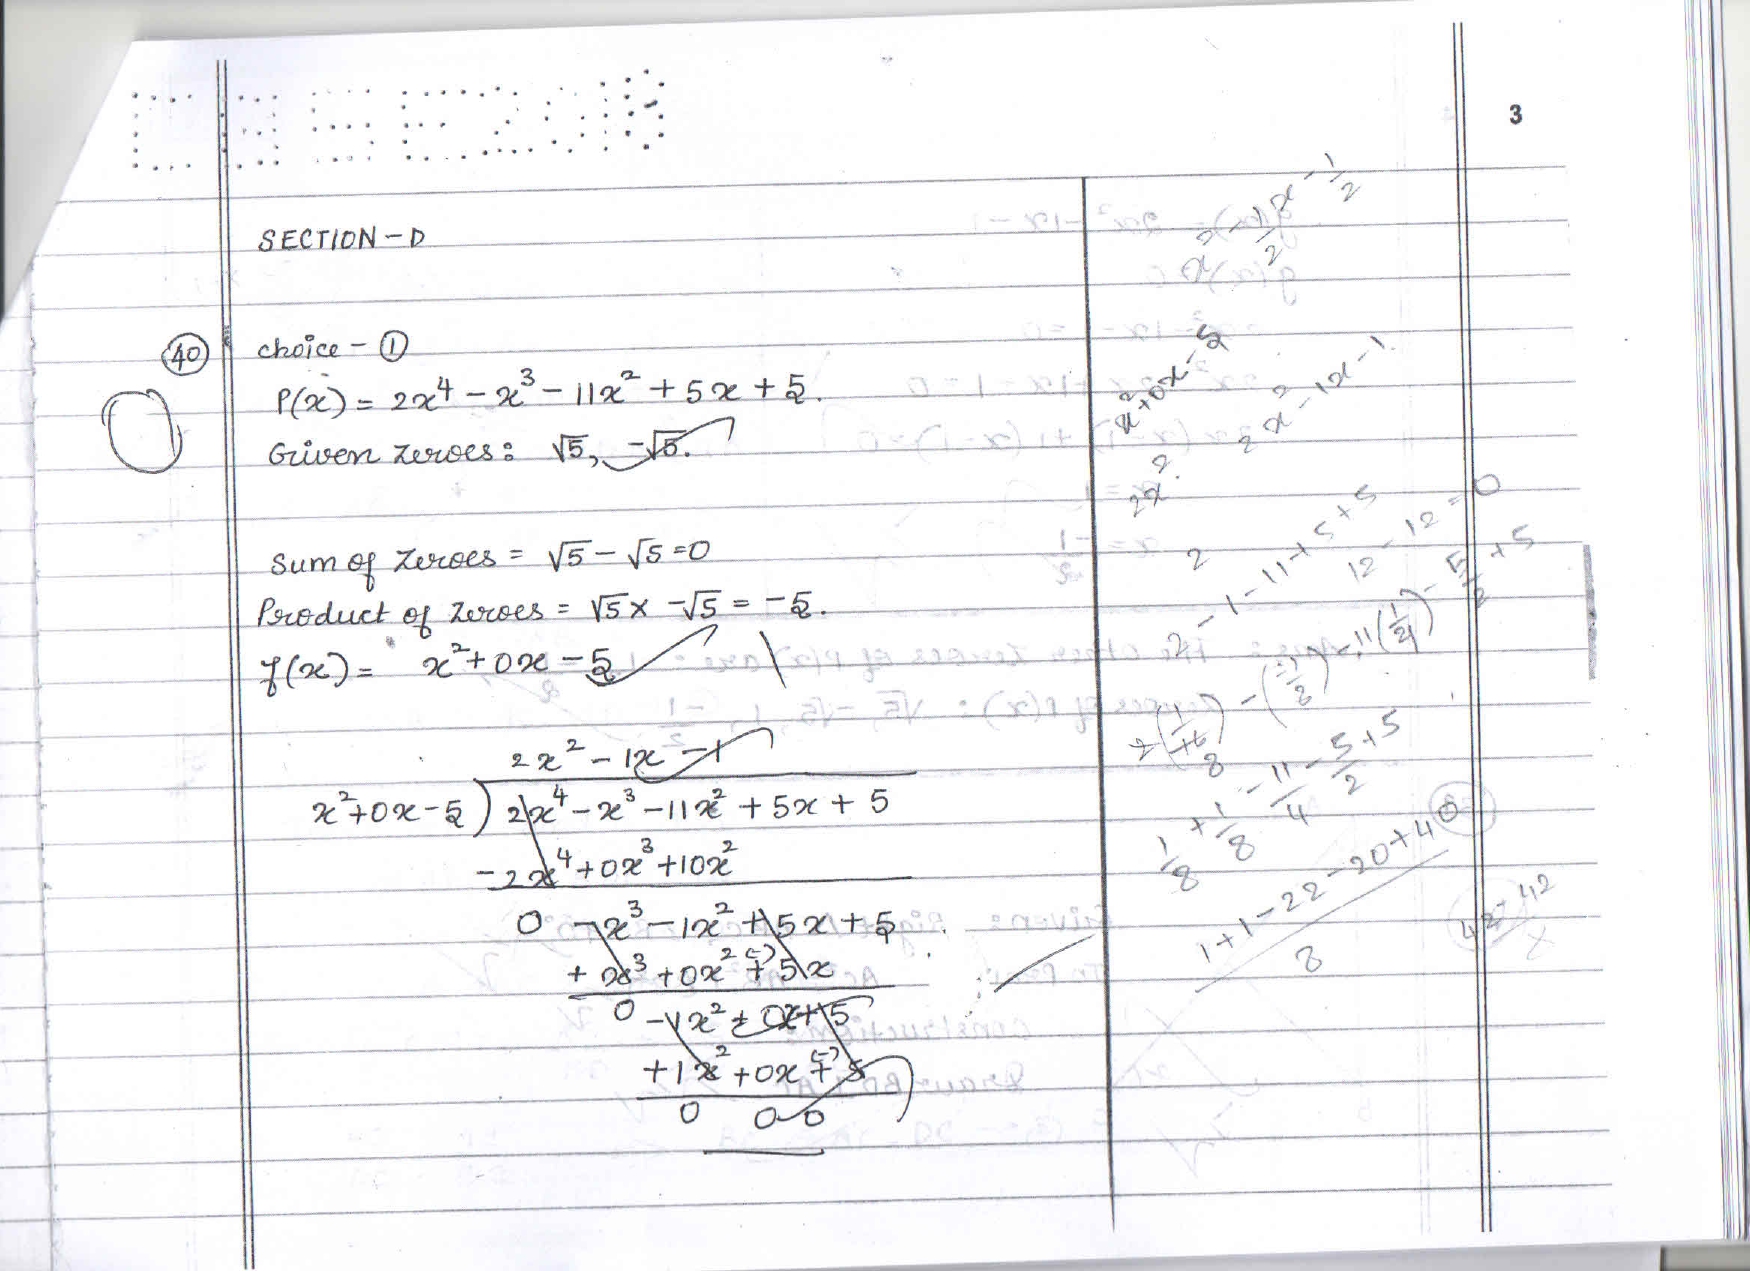 CBSE2018
3
SECTION-D
40 choice - ①
P(x) = 2x⁴ - x³ - 11x² + 5x + 5.
Given zeroes: √5, -√5.
Sum of zeroes = √5 - √5 = 0
Product of zeroes = √5 x -√5 = -5.
f(x) = x² + 0x - 5
2x² - 1x - 1
x²+0x-5 ) 2x⁴ - x³ - 11x² + 5x + 5
- 2x⁴ + 0x³ + 10x²
0 - x³ - 1x² + 5x + 5
+ x³ + 0x² (-)+ 5x
0 - 1x² + 0x + 5
+ 1x² + 0x (-)+ 5
0 0 0
x² - 1/2 x - 1/2
x² + 0x - 5
2x² - 1x - 1
2x²
2 - 1 - 11 + 5 + 5
12 - 12 = 0
1/8 + 1/8 - 11/4 - 5/2 + 5
1 + 1 - 22 - 20 + 40
8